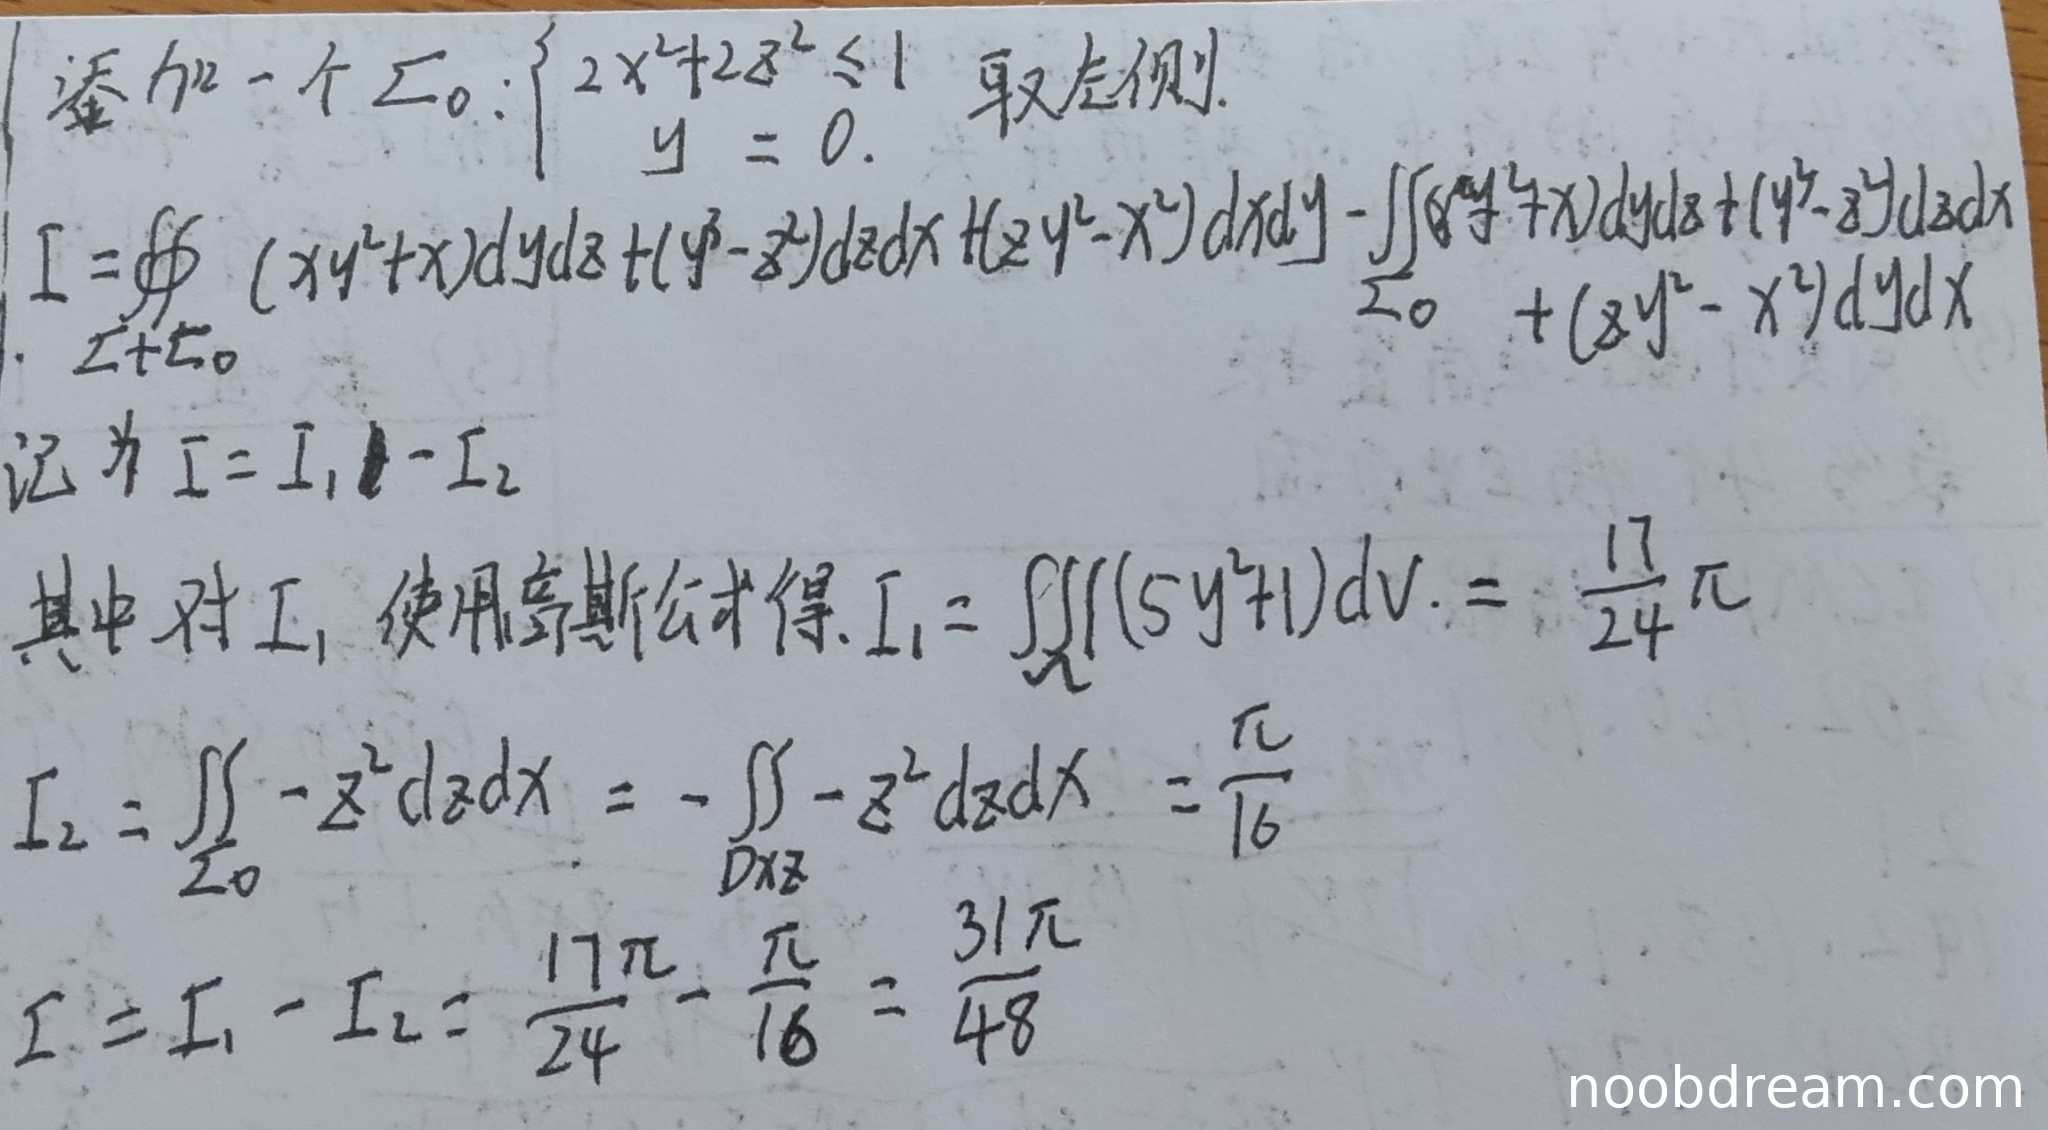 添加一个Σ₀:{2x²+2z²≤1 取左侧.
y = 0.
I = ∯ (xy²+x)dydz+(y³-z²)dzdx+(zy²-x²)dxdy - ∬(xy²+x)dydz+(y³-z²)dzdx
Σ+Σ₀ Σ₀ +(zy²-x²)dydx
记为 I = I₁ - I₂
其中对I₁ 使用高斯公式得. I₁ = ∭(5y²+1)dv. = 17/24 π
Ω
I₂ = ∬ -z²dzdx = -∬ -z²dzdx = π/16
Σ₀ Dxz
I = I₁ - I₂ = 17π/24 - π/16 = 31π/48
noobdream.com